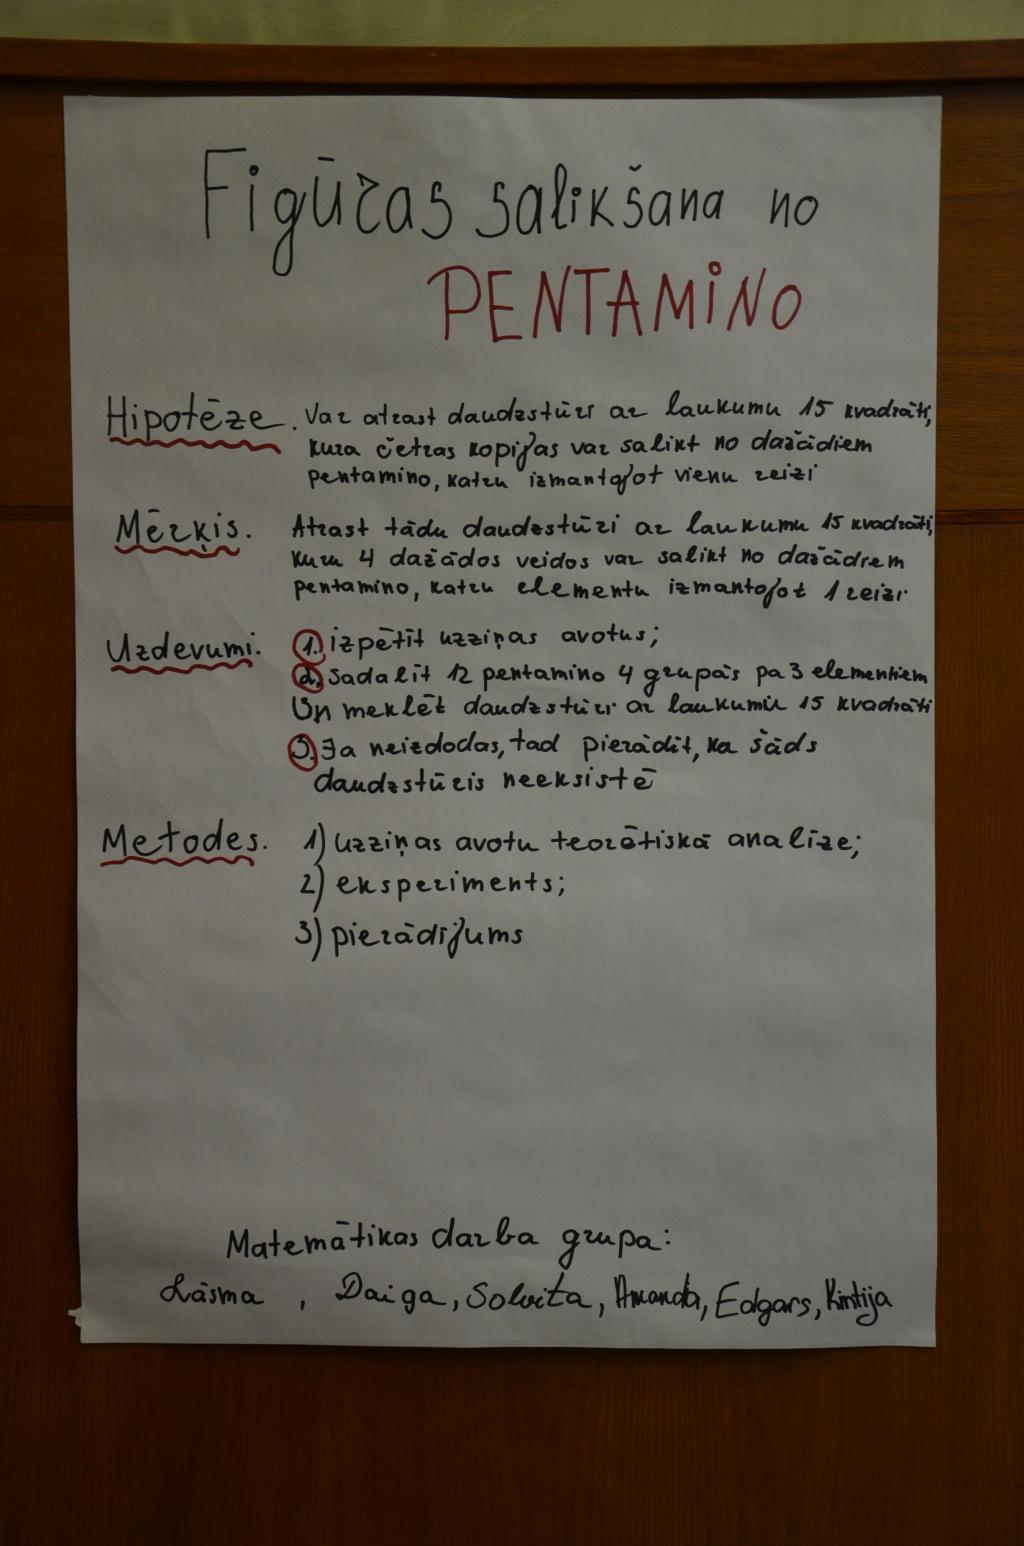 Figūras salikšana no
PENTAMINO
Hipotēze. Var atrast daudzstūri ar laukumu 15 kvadrāti,
kura četras kopijas var salikt no dažādiem
pentamino, katru izmantojot vienu reizi
Mērķis. Atrast tādu daudzstūri ar laukumu 15 kvadrāti,
kuru 4 dažādos veidos var salikt no dažādiem
pentamino, katru elementu izmantojot 1 reizi
Uzdevumi. 1. izpētīt uzziņas avotus;
2. Sadalīt 12 pentamino 4 grupās pa 3 elementiem
Un meklēt daudzstūri ar laukumu 15 kvadrāti
3. Ja neizdodas, tad pierādīt, ka šāds
daudzstūris neeksistē
Metodes. 1) uzziņas avotu teorētiskā analīze;
2) eksperiments;
3) pierādījums
Matemātikas darba grupa:
Lāsma, Daiga, Solvita, Amanda, Edgars, Kintija